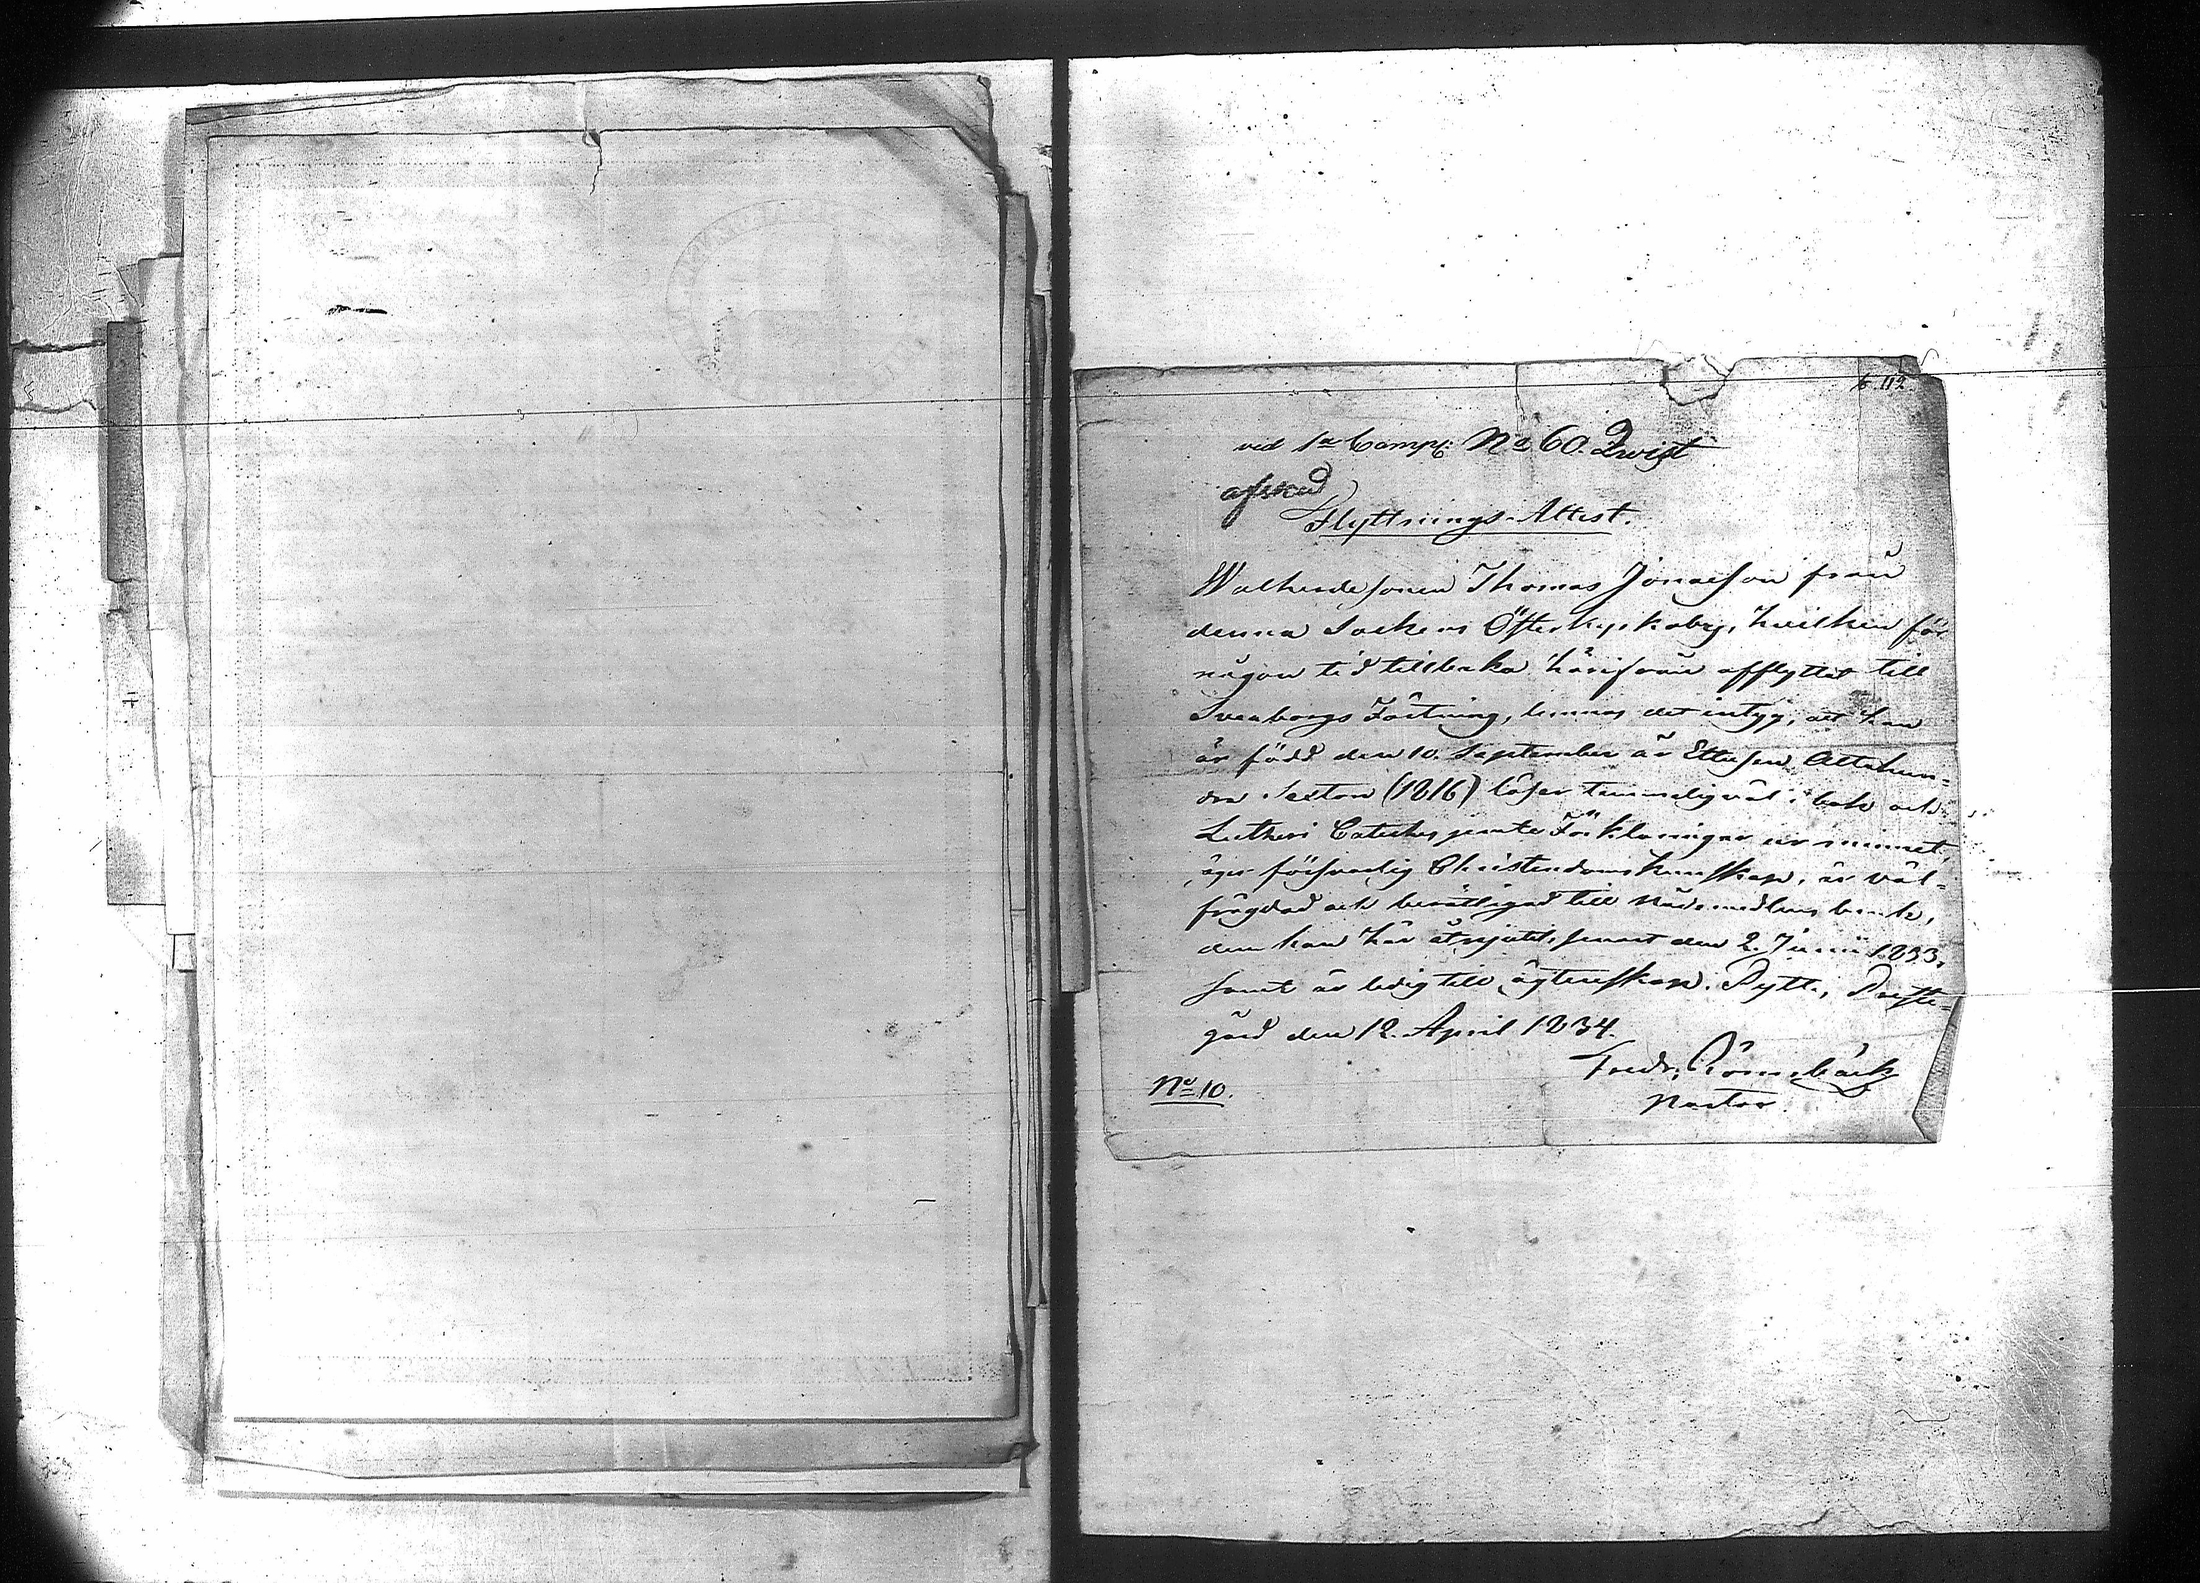 6. 112
ved 1a Comp: No 60. Qwist
afsked
Flyttnings-Attest.
Thomas Jonasson från
denna Sockens Österkyrkoby, hvilken för
någon tid tillbaka härifrån afflyttat till
Sveaborgs Fästning, lemnas det intyg, att han
är född den 10. September år Ettusen Ottahun-
dra Sexton (1816) läser temmelig väl i bok och
Lutheri Cateches jemte Förklaringar ur minnet,
äger försvarlig Christendoms kunskap, är väl-
frägdad och berättigad till Nådemedlens bruk,
dem han här åtnjutit senast den 2. Junii 1833,
samt är ledig till ägtenskap. Pyttis Preste-
gård den 12. April 1834.
Fredr: Rönnbäck
Pastor.
No 10.